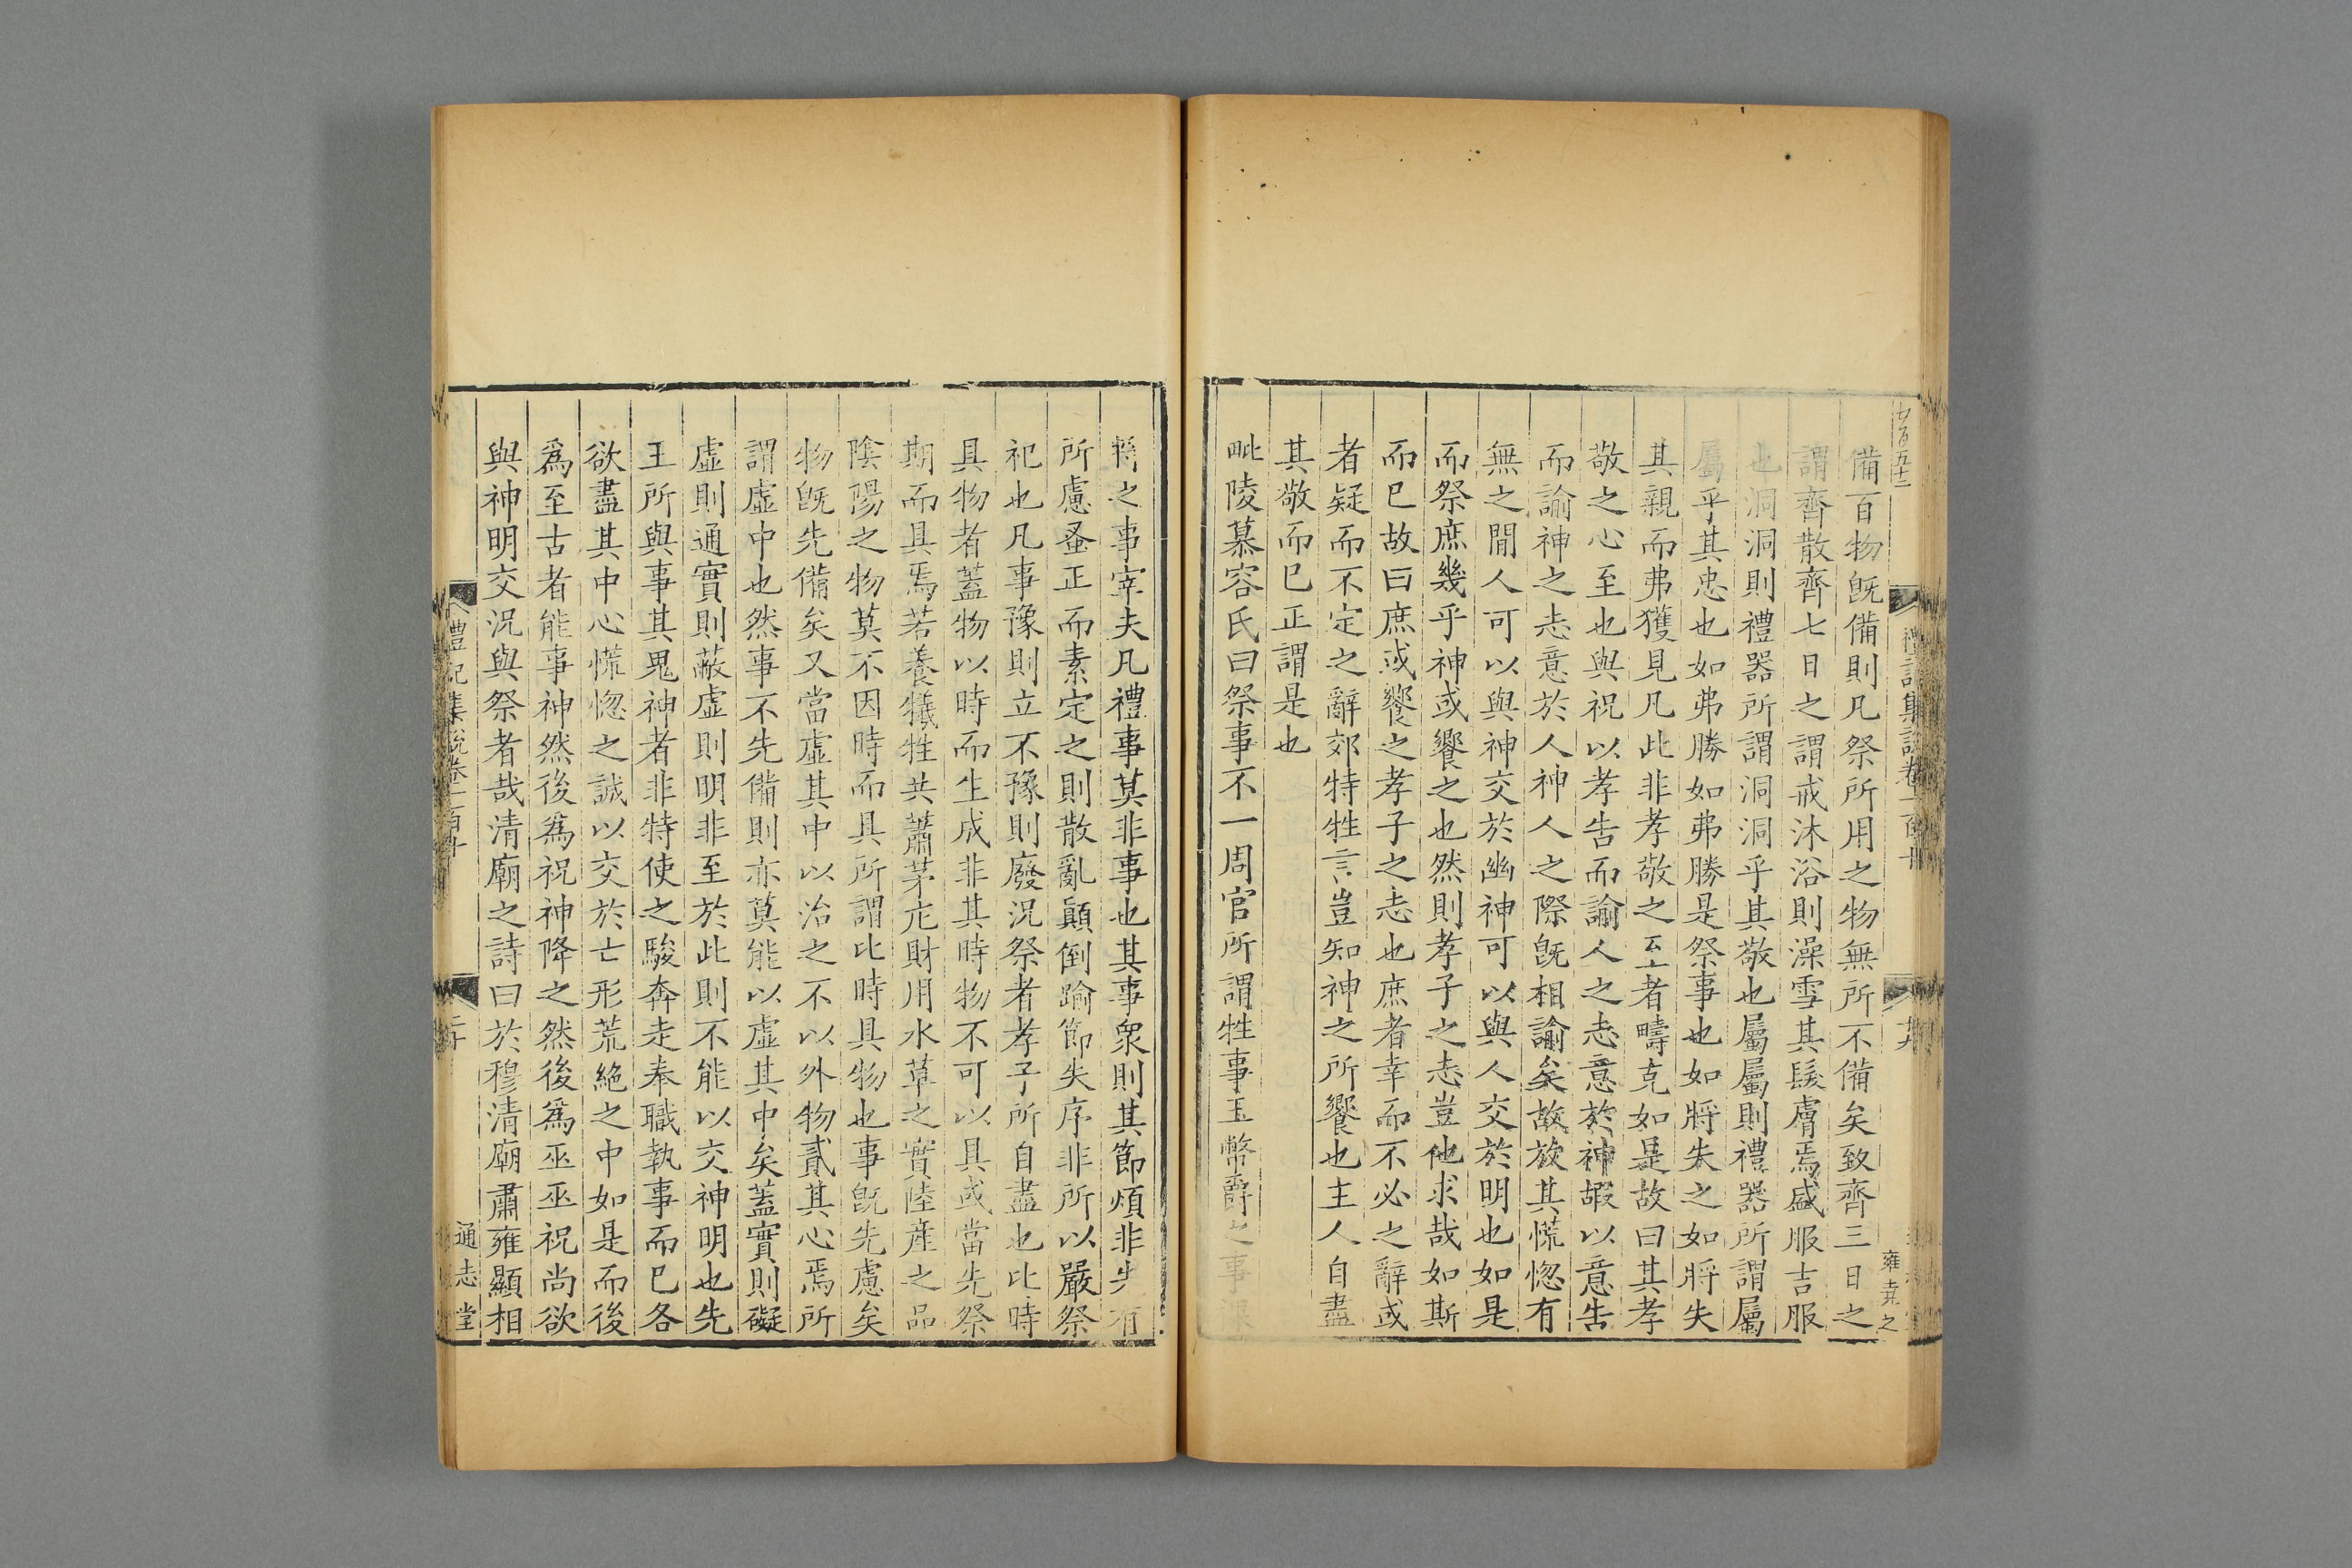 備百物旣備則凡祭所用之物無所不備矣致齊三日之
謂齊散齊七日之謂戒沐浴則澡雪其髮膚焉盛服吉服
也洞洞則禮器所謂洞洞乎其敬也屬屬則禮器所謂屬
屬乎其忠也如弗勝如弗勝是祭事也如將失之如將失
其親而弗獲見凡此非孝敬之至者疇克如是故曰其孝
敬之心至也與祝以孝告而諭人之志意於神嘏以意告
而諭神之志意於人神人之際旣相諭矣故放其慌惚有
無之間人可以與神交於幽神可以與人交於明也如是
而祭庶幾乎神或饗之也然則孝子之志豈他求哉如斯
而已故曰庶或饗之孝子之志也庶者幸而不必之辭或
者疑而不定之辭郊特牲言豈知神之所饗也主人自盡
其敬而已正謂是也
毗陵慕容氏曰祭事不一周官所謂牲事玉幣爵之事
將之事宰夫凡禮事莫非事也其事衆則其節煩非先有
所慮蚤正而素定之則散亂顚倒踰節失序非所以嚴祭
祀也凡事豫則立不豫則廢況祭者孝子所自盡也比時
具物者蓋物以時而生成非其時物不可以具或當先祭
期而具焉若養犧牲共蕭茅庀財用水草之實陸産之品
陰陽之物莫不因時而具所謂比時具物也事旣先慮矣
物旣先備矣又當虛其中以治之不以外物貳其心焉所
謂虛中也然事不先備則亦莫能以虛其中矣蓋實則礙
虛則通實則蔽虛則明非至於此則不能以交神明也先
王所與事其鬼神者非特使之駿奔走奉職執事而已各
欲盡其中心慌惚之誠以交於亡形荒絶之中如是而後
爲至古者能事神然後爲祝神降之然後爲巫巫祝尚欲
與神明交況與祭者哉清廟之詩曰於穆清廟肅雍顯相
禮記集說卷一百十
通志堂